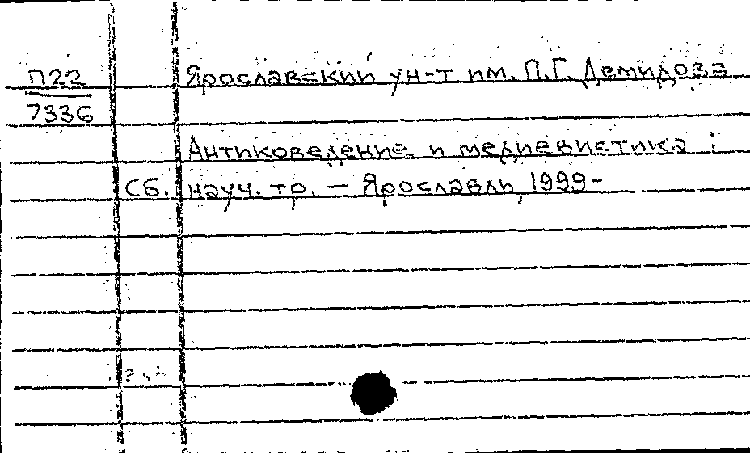 П22
7336
Ярославский ун-т им. П.Г. Демидова
Антиковедение и медиевистика :
Сб. науч. тр. — Ярославль, 1999-